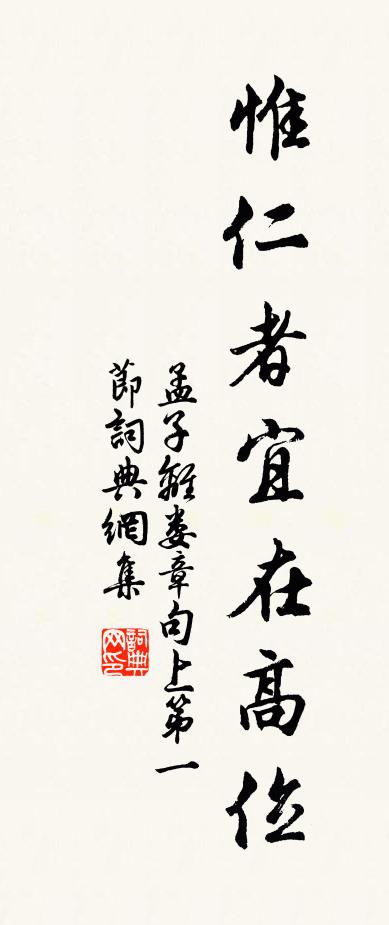 惟仁者宜在高位
孟子離婁章句上第一
節詞典網集
詞典
网印